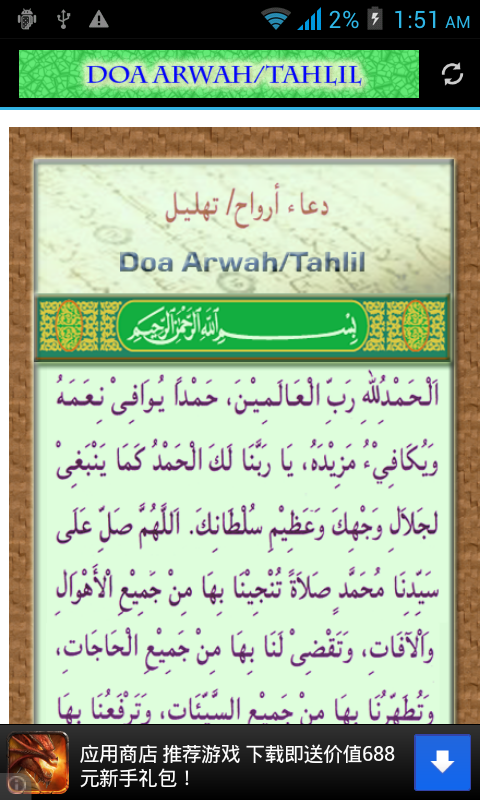 2% 1:51 AM
DOA ARWAH/TAHLIL
دعاء أرواح/ تهليل
Doa Arwah/Tahlil
بِسْمِ اللَّهِ الرَّحْمَنِ الرَّحِيمِ
اَلْحَمْدُلِلّٰهِ رَبِّ الْعَالَمِيْنَ، حَمْدًا يُوَافِىْ نِعَمَهُ
وَيُكَافِيْءُ مَزِيْدَهُ، يَا رَبَّنَا لَكَ الْحَمْدُ كَمَا يَنْبَغِىْ
لِجَلَالِ وَجْهِكَ وَعَظِيْمِ سُلْطَانِكَ. اَللّٰهُمَّ صَلِّ عَلَى
سَيِّدِنَا مُحَمَّدٍ صَلَاةً تُنْجِيْنَا بِهَا مِنْ جَمِيْعِ الْأَهْوَالِ
وَالْآفَاتِ، وَتَقْضِىْ لَنَا بِهَا مِنْ جَمِيْعِ الْحَاجَاتِ،
وَتُطَهِّرُنَا بِهَا مِنْ جَمِيْعِ السَّيِّئَاتِ، وَتَرْفَعُنَا بِهَا
应用商店 推荐游戏 下载即送价值688
元新手礼包！